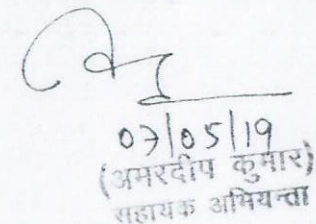 07/05/19
(अमरदीप कुमार)
सहायक अभियन्ता